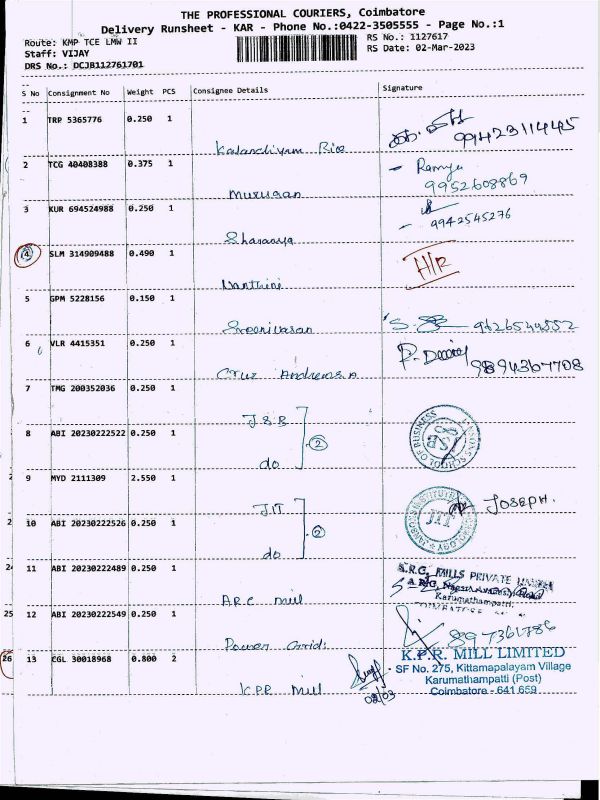 THE PROFESSIONAL COURIERS, Coimbatore
Delivery Runsheet - KAR - Phone No.:0422-3505555 - Page No.:1
Route: KMP TCE LMW II
RS No.: 1127617
Staff: VIJAY
RS Date: 02-Mar-2023
DRS No.: DCJB112761701
S No Consignment No Weight PCS Consignee Details Signature
1 TRP 5365776 0.250 1
99423114445
2 TCG 40408388 0.375 1 - Ramya
Murugan 9952608869
3 KUR 694524988 0.250 1
Sharanya - 9942545276
4 SLM 314909488 0.490 1 H/R
Nanthini
5 GPM 5228156 0.150 1
Sreenivasan
6 VLR 4415351 0.250 1
Cruz 9894367708
7 TMG 200352036 0.250 1
JSB
8 ABI 20230222522 0.250 1 2
do
JANSONS SCHOOL OF BUSINESS
JSB
9 MYD 2111309 2.550 1
JIT JOSEPH.
10 ABI 20230222526 0.250 1 2
do
JIT
24 11 ABI 20230222489 0.250 1
A.R.C mill
A.R.G. MILLS PRIVATE
Karumathampatti.
25 12 ABI 20230222549 0.250 1
Power Grid:
26 13 CGL 30018968 0.800 2
KPR Mill
02/03
K.P.R. MILL LIMITED
SF No. 275, Kittamapalayam Village
Karumathampatti (Post)
Coimbatore - 641 659